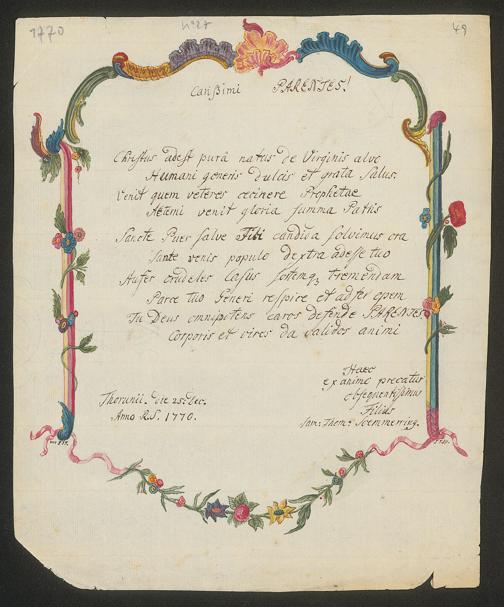 1770
N° 27
49
Carißimi PARENTES!
Christus adest purâ natus de Virginis alvo
Humani generis dulcis et grata Salus.
Venit quem veteres cecinere Prophetae
Aeterni venit gloria summa Patris
Sancte Puer salve Tibi candida solvimus ora
Sante venis populo dextra adesse tuo
Aufer crudeles Casus sortemq, tremendam
Parce tuo Generi respice et adfer opem
Tu Deus omnipotens caros defende PARENTES
Corporis et vires da validos animi
Haec
ex animo precatur
obsequentissimus
Filius
Sam: Thom: Soemmerring.
Thorunii. Die 25 Dec.
Anno R.S. 1770.